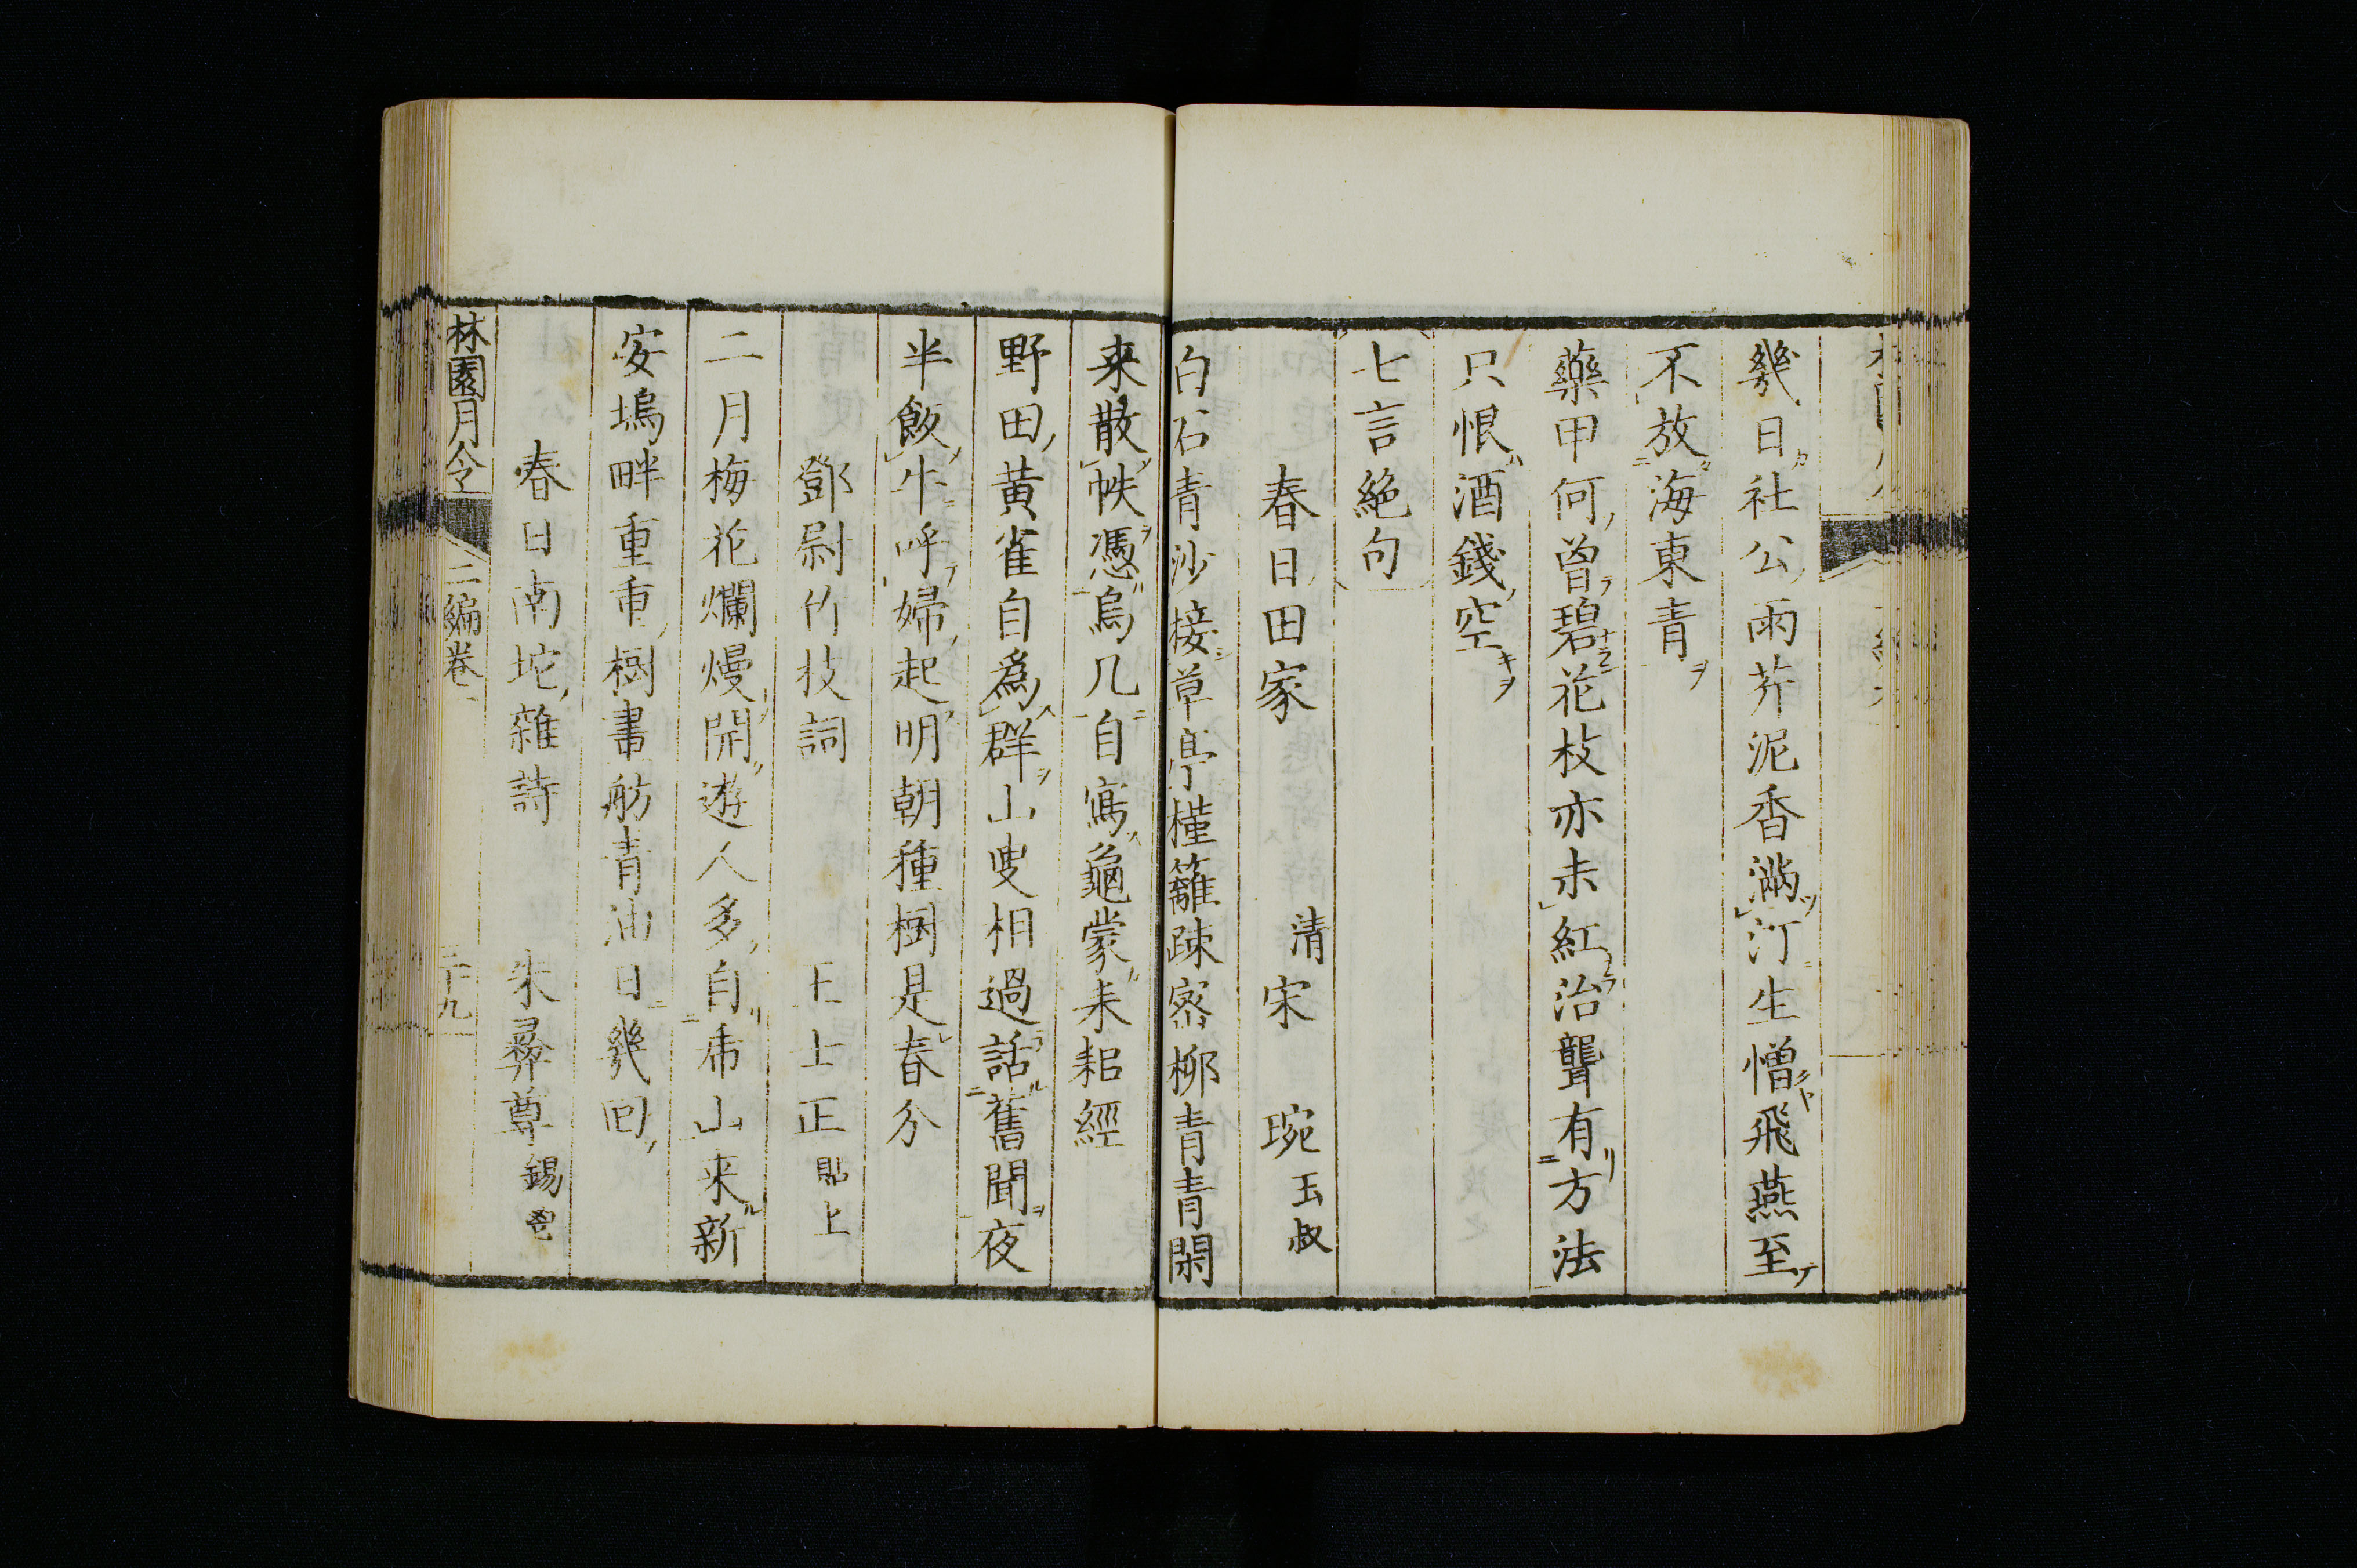 幾日社公雨芹泥香滿汀生憎飛燕至
不放海東青
藥甲何曾碧花枝亦未紅治聾有方法
只恨酒錢空
七言絶句
春日田家 清 宋 琬 玉叔
白石青沙接草亭槿籬疎密柳青青閑
来散帙憑烏几自寫龜蒙耒耜經
野田黄雀自爲群山叟相過話舊聞夜
半飯牛呼婦起明朝種樹是春分
鄧尉竹枝詞 王士正 貽上
二月梅花爛熳開遊人多自虎山来新
安塢畔重重樹畫舫青油日幾回
春日南坨雜詩 朱彝尊 錫鬯
林園月令 二編卷一 二十九